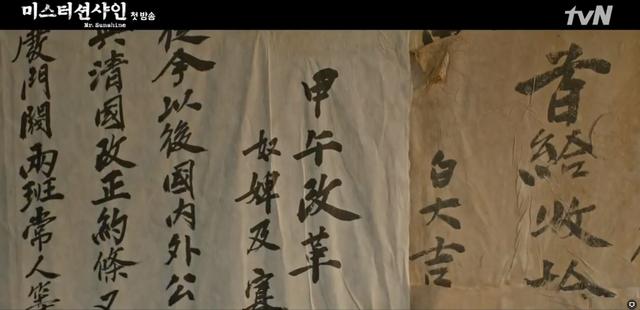 미스터션샤인
첫방송
Mr. Sunshine
tvN
給收
白大吉
甲午改革
奴婢及
今以後國内外公
清國改正約條又
廢門閥兩班常人等